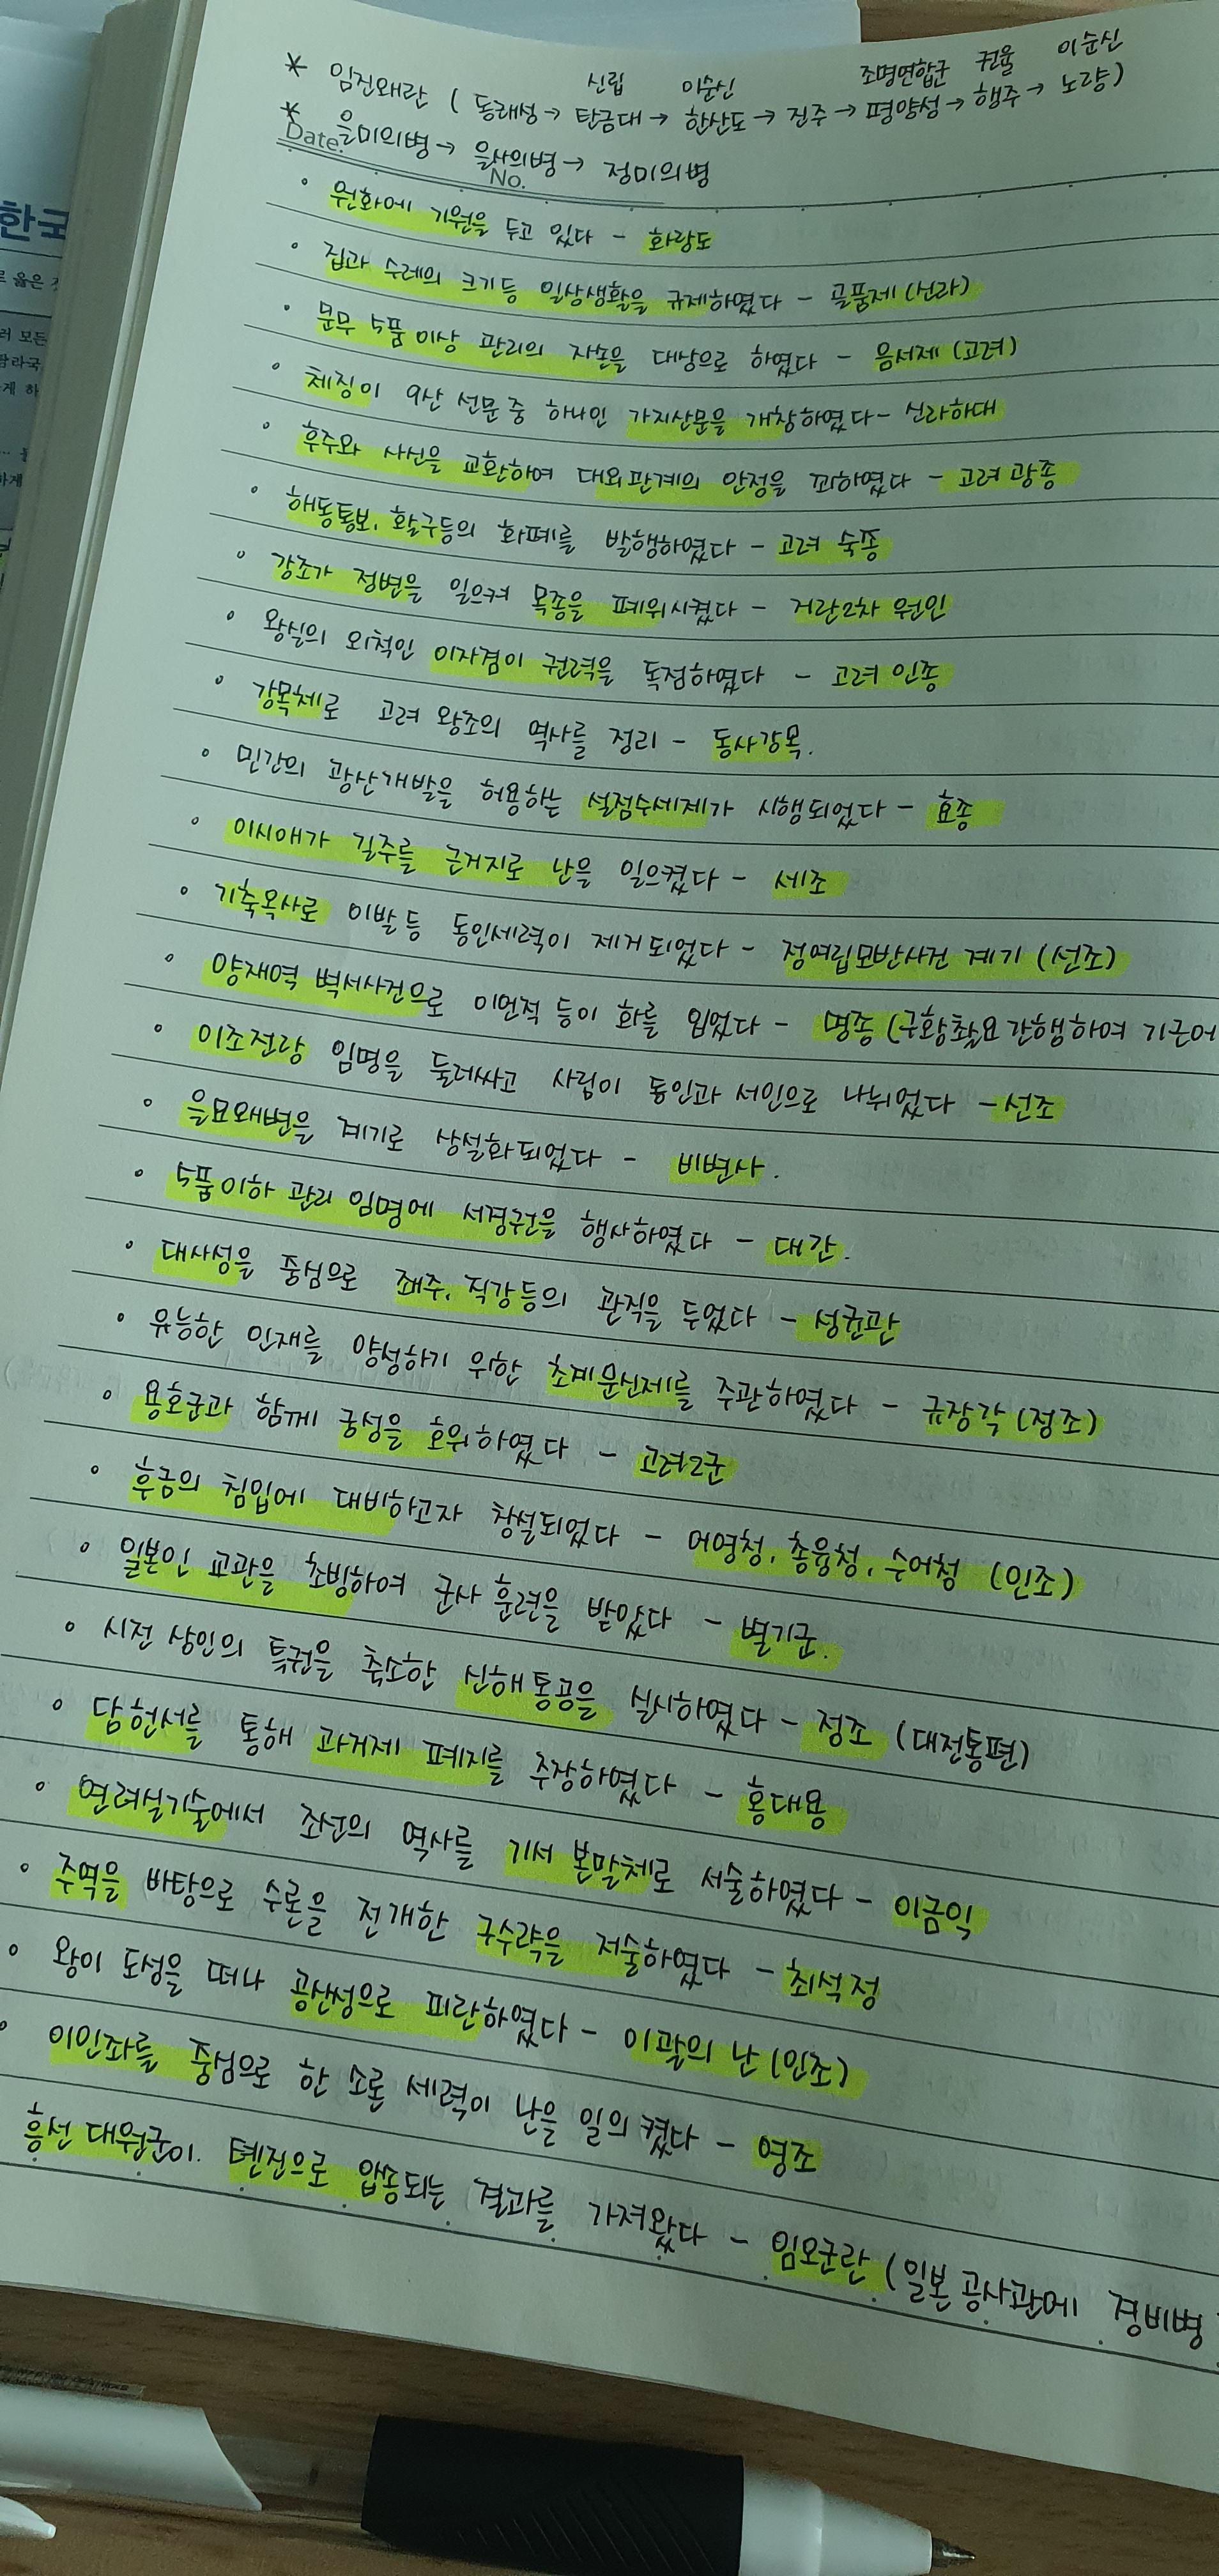 신립 이순신 조명연합군 권율 이순신
* 임진왜란 ( 동래성 → 탄금대 → 한산도 → 진주 → 평양성 → 행주 → 노량 )
* 을미의병 → 을사의병 → 정미의병
Date.
No.
• 원화에 기원을 두고 있다 - 화랑도
• 집과 수레의 크기등 일상생활을 규제하였다 - 골품제 (신라)
• 문무 5품이상 관리의 자손을 대상으로 하였다 - 음서제 (고려)
• 체징이 9산 선문중 하나인 가지산문을 개창하였다 - 신라하대
• 후주와 사신을 교환하여 대외관계의 안정을 꾀하였다 - 고려 광종
• 해동통보, 활구등의 화폐를 발행하였다 - 고려 숙종
• 강조가 정변을 일으켜 목종을 폐위시켰다 - 거란2차 원인
• 왕실의 외척인 이자겸이 권력을 독점하였다 - 고려 인종
• 강목체로 고려 왕조의 역사를 정리 - 동사강목.
• 민간의 광산개발을 허용하는 설점수세제가 시행되었다 - 효종
• 이시애가 길주를 근거지로 난을 일으켰다 - 세조
• 기축옥사로 이발 등 동인세력이 제거되었다 - 정여립모반사건 계기 (선조)
• 양재역 벽서사건으로 이언적 등이 화를 입었다 - 명종 (구황촬요 간행하여 기근에
• 이조전랑 임명을 둘러싸고 사림이 동인과 서인으로 나뉘었다 - 선조
• 을묘왜변을 계기로 상설화되었다 - 비변사.
• 5품이하 관리 임명에 서경권을 행사하였다 - 대간.
• 대사성을 중심으로 좨주, 직강등의 관직을 두었다 - 성균관
• 유능한 인재를 양성하기 위한 초계문신제를 주관하였다 - 규장각 (정조)
• 용호군과 함께 궁성을 호위하였다 - 고려2군
• 후금의 침입에 대비하고자 창설되었다 - 어영청, 총융청, 수어청 (인조)
• 일본인 교관을 초빙하여 군사 훈련을 받았다 - 별기군.
• 시전 상인의 특권을 축소한 신해통공을 실시하였다 - 정조 (대전통편)
• 담헌서를 통해 과거제 폐지를 주장하였다 - 홍대용
• 연려실기술에서 조선의 역사를 기서 본말체로 서술하였다 - 이금익
• 주역을 바탕으로 수론을 전개한 구수략을 저술하였다 - 최석정
• 왕이 도성을 떠나 공산성으로 피란하였다 - 이괄의 난 (인조)
• 이인좌를 중심으로 한 소론 세력이 난을 일의켰다 - 영조
흥선 대원군이. 톈진으로 압송되는 결과를 가져왔다 - 임오군란 (일본 공사관에 경비병